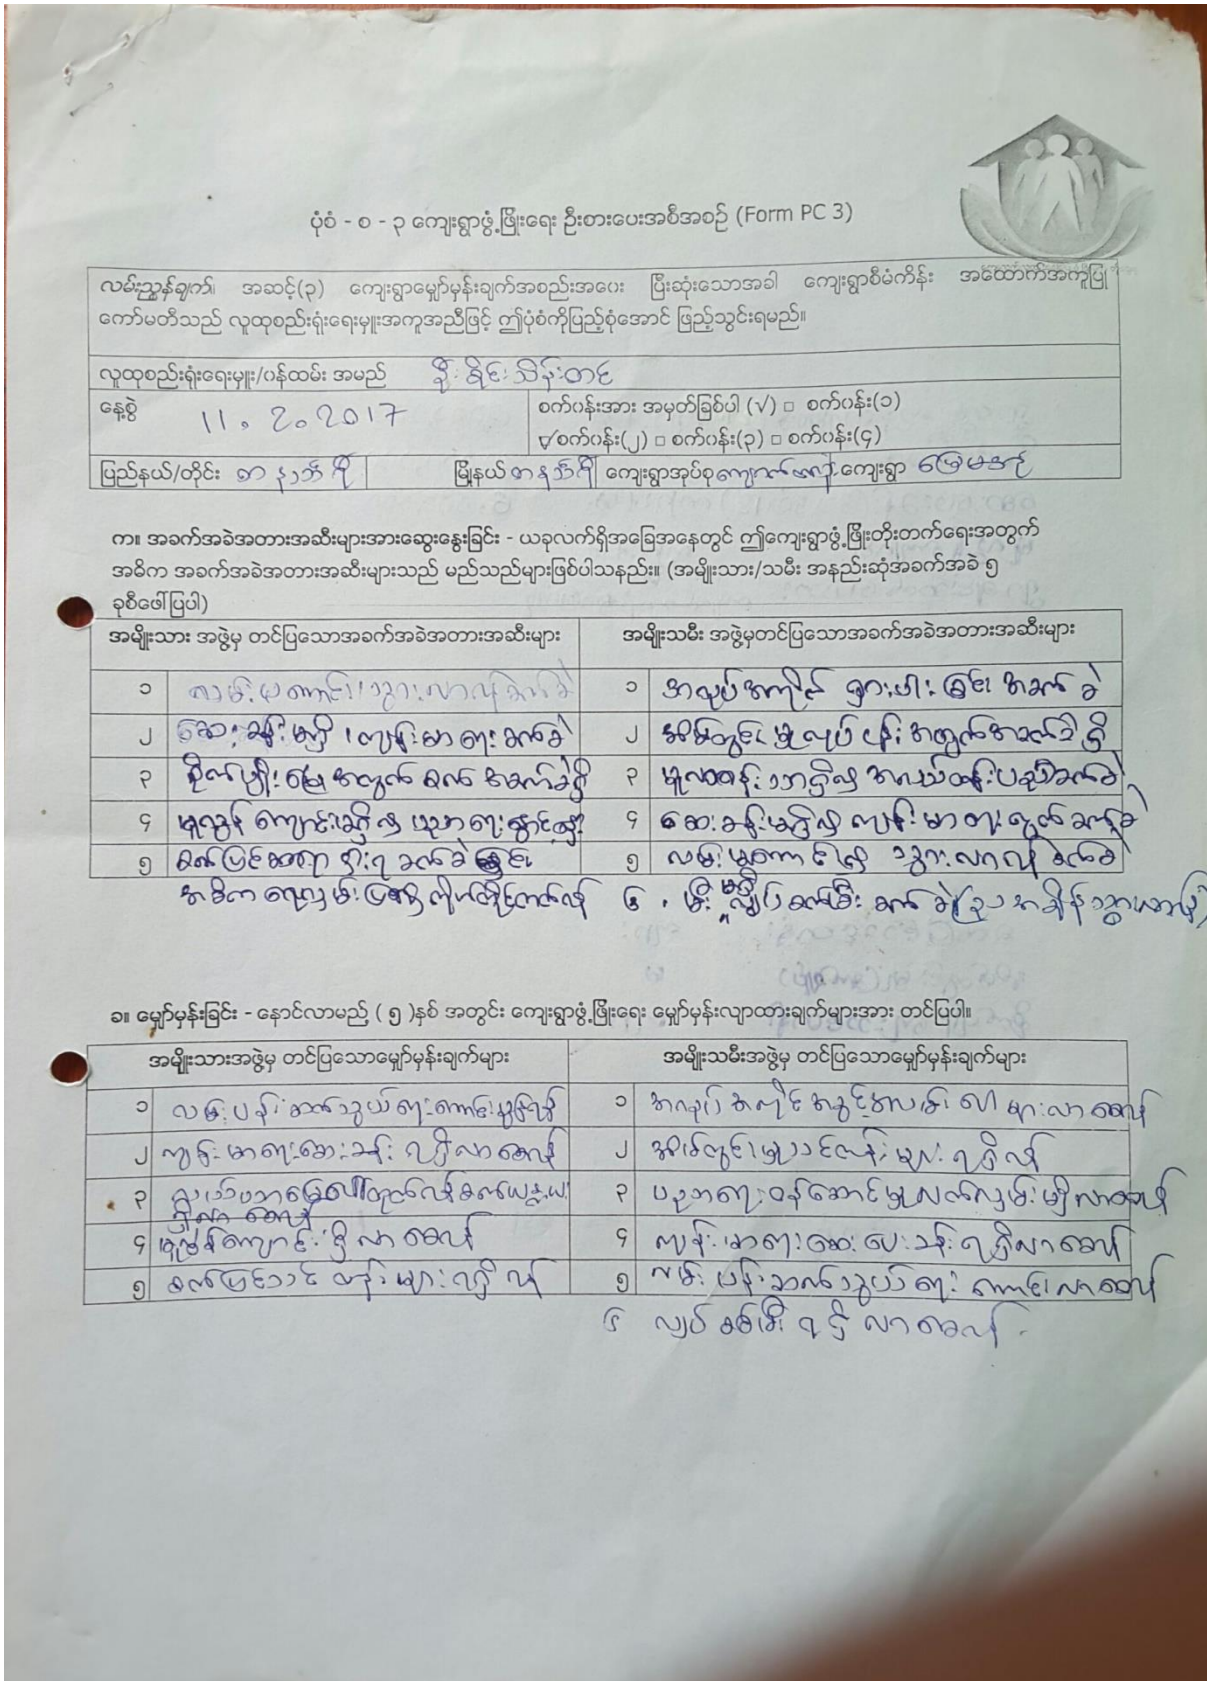 ပုံစံ - စ - ၃ ကျေးရွာဖွံ့ဖြိုးရေး ဦးစားပေးအစီအစဉ် (Form PC 3)
လမ်းညွှန်ချက်၊ အဆင့်(၃) ကျေးရွာမျှော်မှန်းချက်အစည်းအဝေး ပြီးဆုံးသောအခါ ကျေးရွာစီမံကိန်း အထောက်အကူပြု
ကော်မတီသည် လူထုစည်းရုံးရေးမှူးအကူအညီဖြင့် ဤပုံစံကိုပြည့်စုံအောင် ဖြည့်သွင်းရမည်။
လူထုစည်းရုံးရေးမှူး/ဝန်ထမ်း အမည် ဦးခိုင်သိန်းတင်
နေ့စွဲ 11.2.2017 စက်ဝန်းအား အမှတ်ခြစ်ပါ (√) □ စက်ဝန်း(၁)
√ စက်ဝန်း(၂) □ စက်ဝန်း(၃) □ စက်ဝန်း(၄)
ပြည်နယ်/တိုင်း တနင်္သာရီ မြို့နယ် တနင်္သာရီ ကျေးရွာအုပ်စု ကျေးရွာ
က။ အခက်အခဲအတားအဆီးများအားဆွေးနွေးခြင်း - ယခုလက်ရှိအခြေအနေတွင် ဤကျေးရွာဖွံ့ဖြိုးတိုးတက်ရေးအတွက်
အဓိက အခက်အခဲအတားအဆီးများသည် မည်သည်များဖြစ်ပါသနည်း။ (အမျိုးသား/သမီး အနည်းဆုံးအခက်အခဲ ၅
ခုစီဖေါ်ပြပါ)
အမျိုးသား အဖွဲ့မှ တင်ပြသောအခက်အခဲအတားအဆီးများ အမျိုးသမီး အဖွဲ့မှတင်ပြသောအခက်အခဲအတားအဆီးများ
၁ လမ်းမကောင်း၊ သွားလာရန်ခက်ခဲ ၁ အလုပ်အကိုင် ရှားပါးခြင်း အခက်ခဲ
၂ ဆေးခန်းမရှိ၊ ကျန်းမာရေးခက်ခဲ ၂ အိမ်တွင်းမှုလုပ်ငန်း အတွက်အခက်ခဲရှိ
၃ စိုက်ပျိုးမြေအတွက် အခက်ခဲရှိ ၃ မူလတန်းသာရှိ၍ အလယ်တန်းပညာခက်ခဲ
၄ မူလွန်ကျောင်းမရှိ၍ ပညာရေး ၄ ဆေးခန်းမရှိ၍ ကျန်းမာရေးအတွက်ခက်ခဲ
၅ ခက်ခဲခြင်း ၅ လမ်းမကောင်း၍ သွားလာရန်ခက်ခဲ
၆ မီးမရှိ လျှပ်စစ်မီးခက်ခဲ
ခ။ မျှော်မှန်းခြင်း - နောင်လာမည့် ( ၅ )နှစ် အတွင်း ကျေးရွာဖွံ့ဖြိုးရေး မျှော်မှန်းလျာထားချက်များအား တင်ပြပါ။
အမျိုးသားအဖွဲ့မှ တင်ပြသောမျှော်မှန်းချက်များ အမျိုးသမီးအဖွဲ့မှ တင်ပြသောမျှော်မှန်းချက်များ
၁ လမ်းပန်းဆက်သွယ်ရေးကောင်းမွန်ရန် ၁ အလုပ်အကိုင်အခွင့်အလမ်း ပေါများလာစေရန်
၂ ကျန်းမာရေးဆေးခန်း ရရှိလာစေရန် ၂ အိမ်တွင်းမှုသင်တန်းများရရှိရန်
၃ ရှိလာစေရန် ၃ ပညာရေးဝန်ဆောင်မှုလက်လှမ်းမှီလာစေရန်
၄ မူလွန်ကျောင်းရှိလာစေရန် ၄ ကျန်းမာရေးဆေးပေးခန်းရရှိလာစေရန်
၅ သင်တန်းများရရှိရန် ၅ လမ်းပန်းဆက်သွယ်ရေး ကောင်းလာစေရန်
၆ လျှပ်စစ်မီးရရှိလာစေရန်